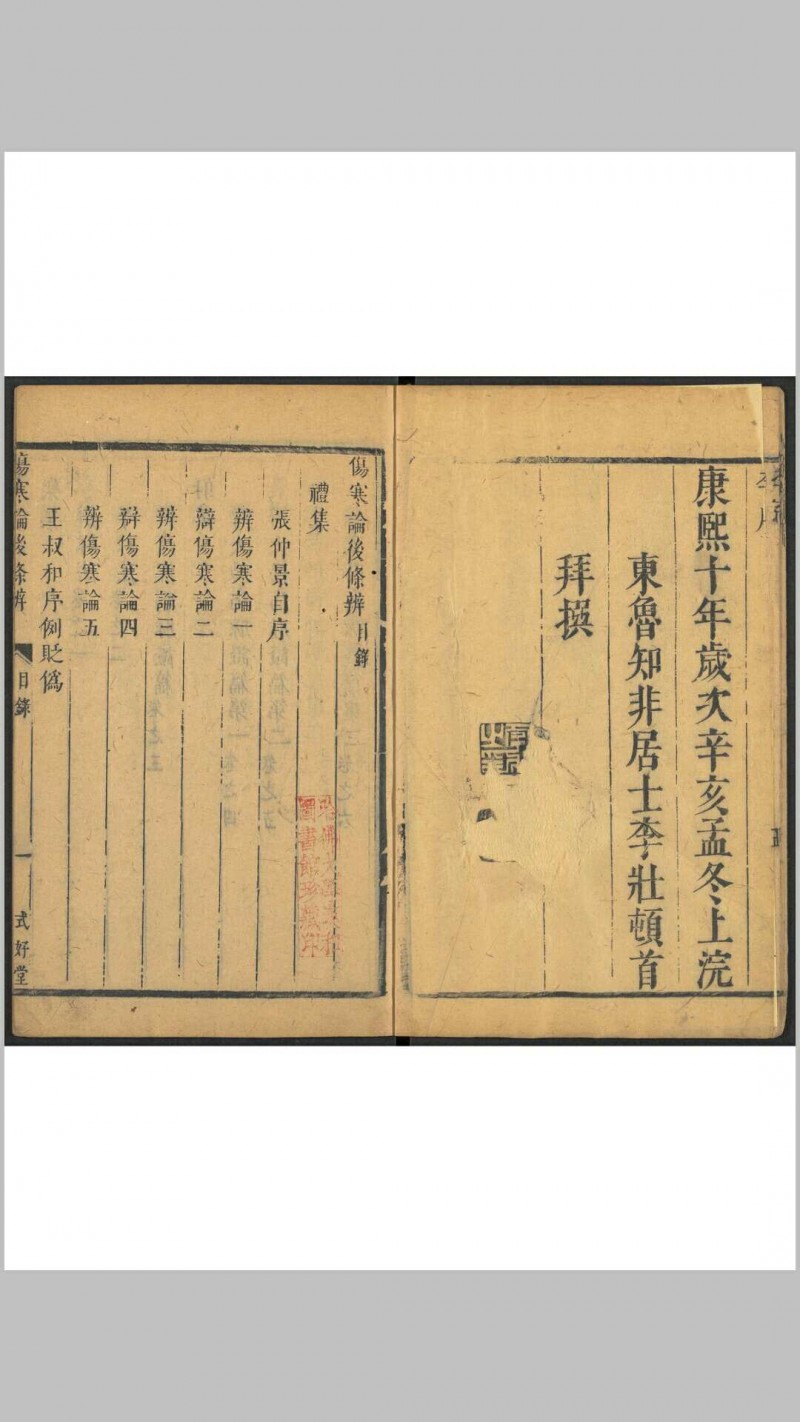 康熙十年歲次辛亥孟冬上浣
東魯知非居士李壯頓首
拜撰
傷寒論後條辨目錄
禮集
張仲景自序
辨傷寒論一
辯傷寒論二
辨傷寒論三
辯傷寒論四
辨傷寒論五
王叔和序例貶偽
傷寒論後條辨 目錄 一 式好堂